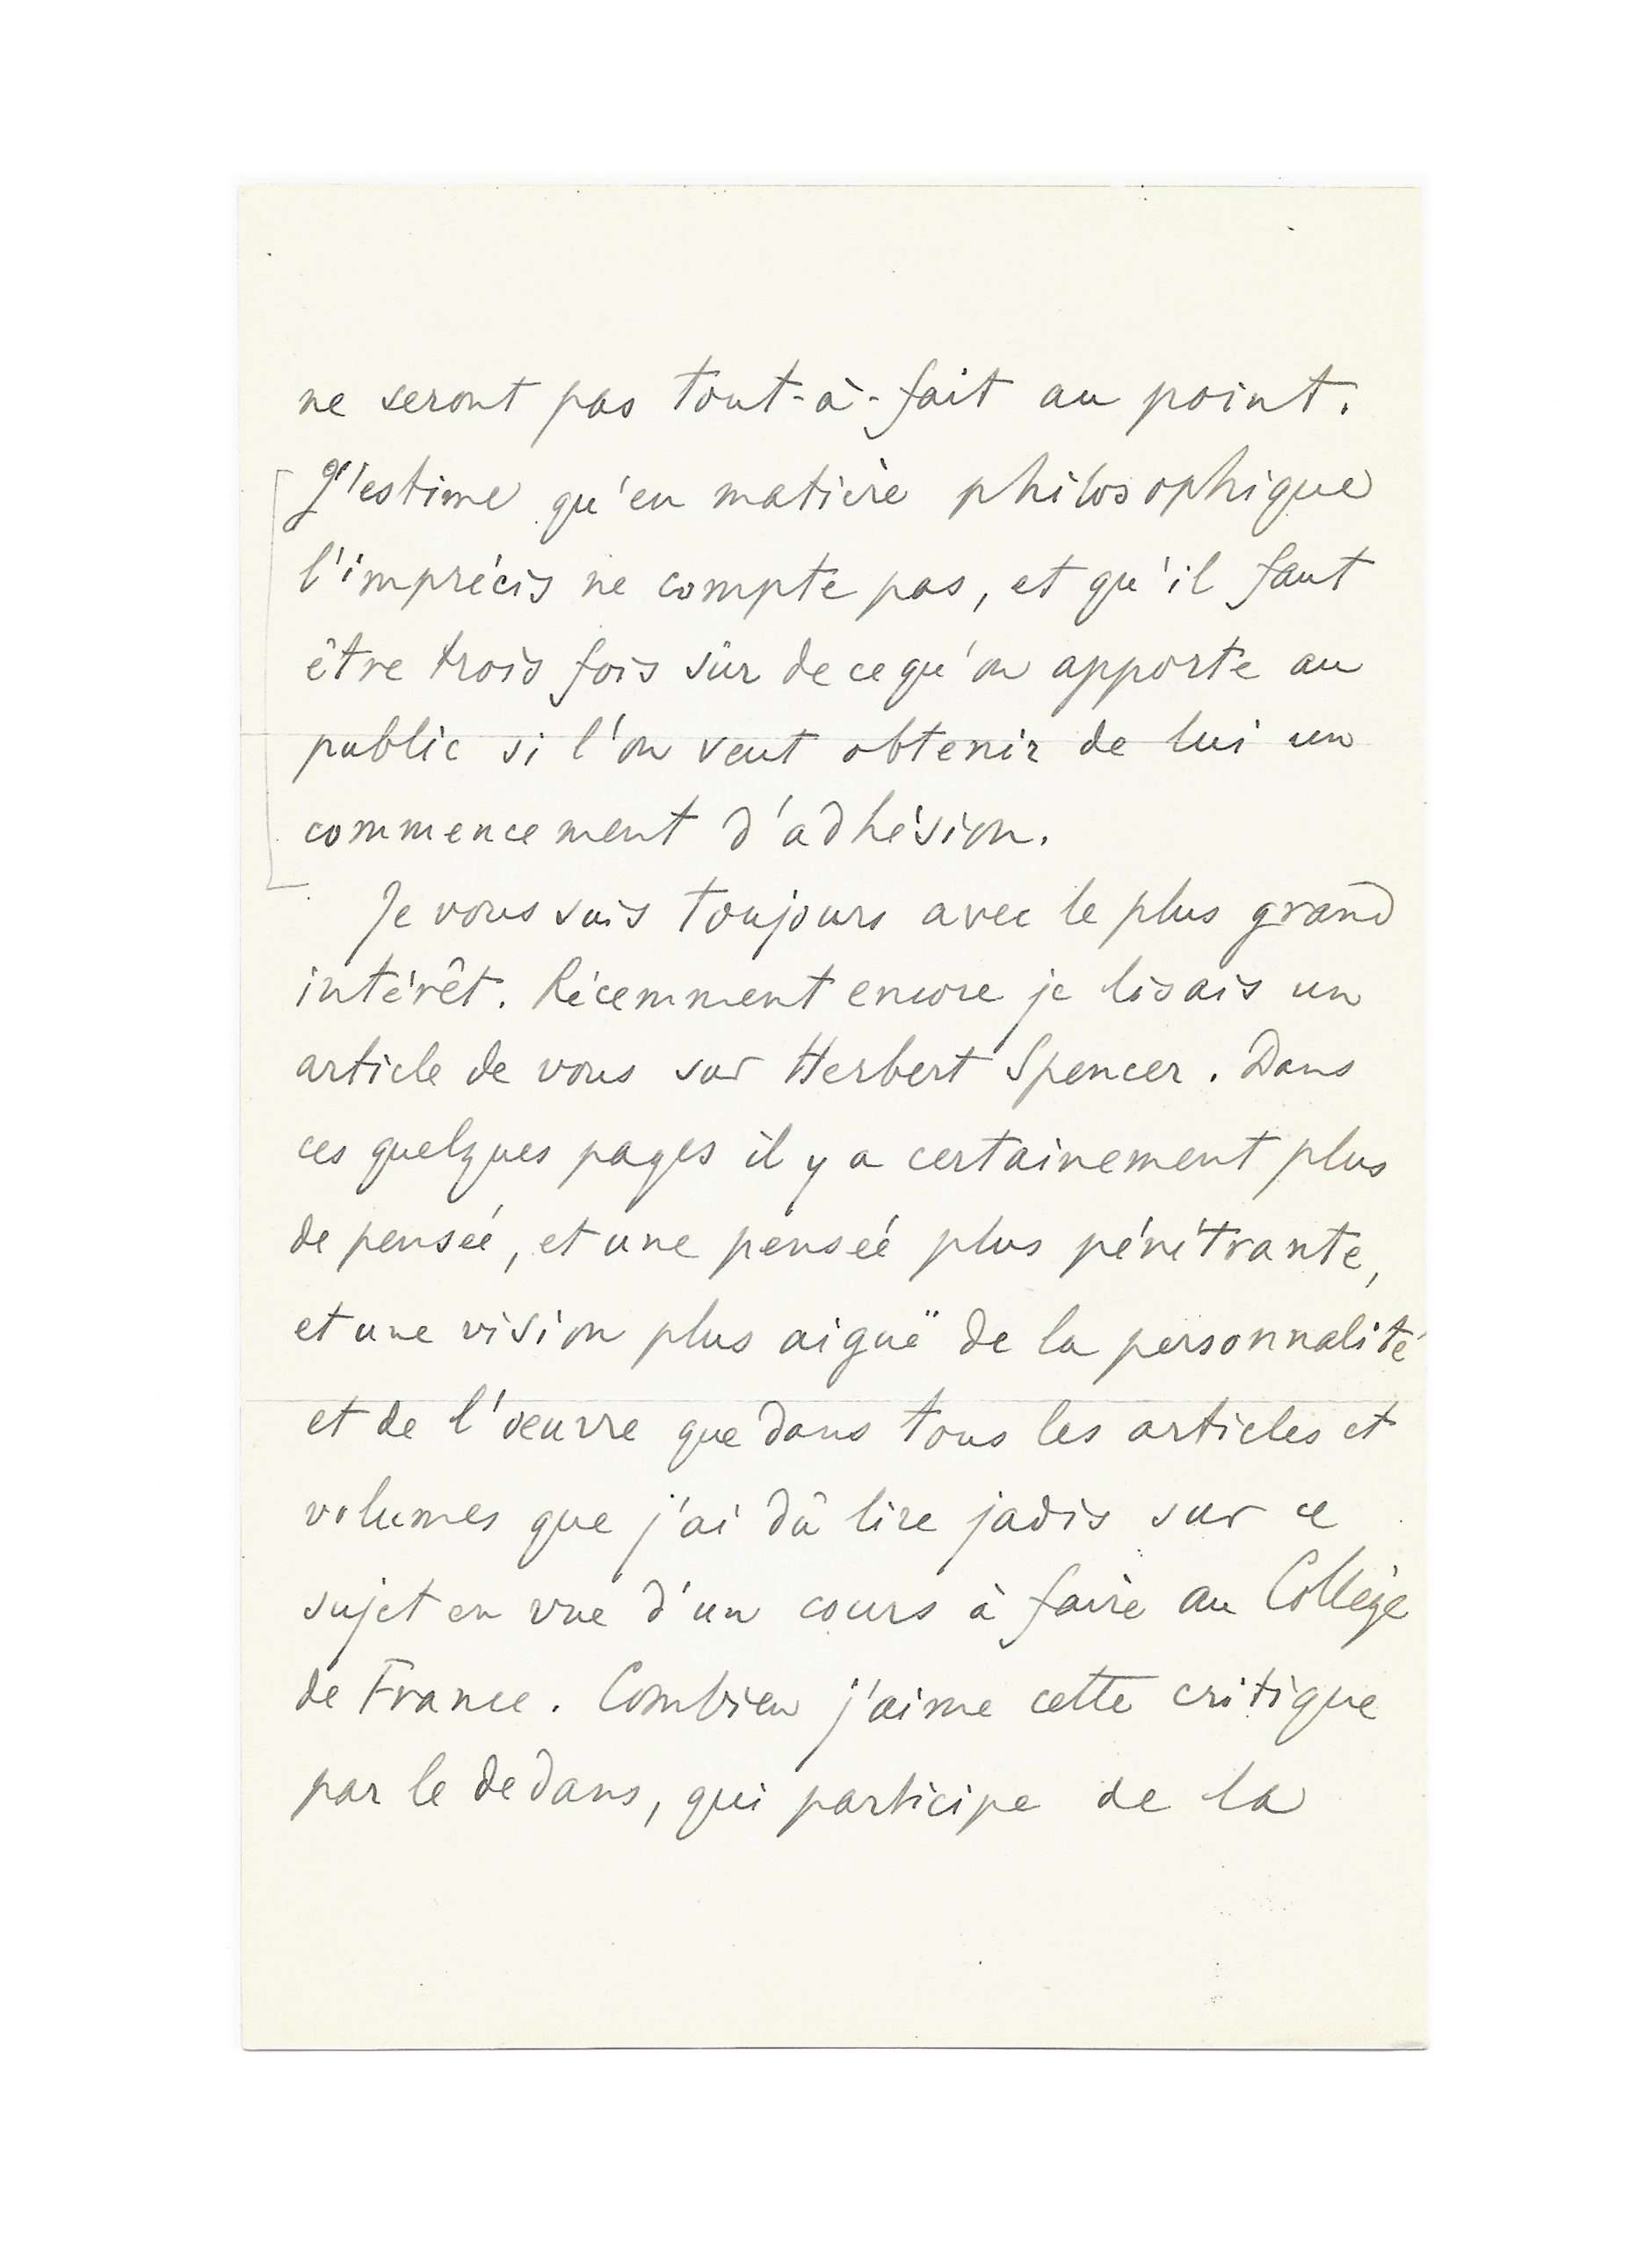 ne seront pas tout-à-fait au point.
J'estime qu'en matière philosophique
l'imprécis ne compte pas, et qu'il faut
être trois fois sûr de ce qu'on apporte au
public si l'on veut obtenir de lui un
commencement d'adhésion.
Je vous suis toujours avec le plus grand
intérêt. Récemment encore je lisais un
article de vous sur Herbert Spencer. Dans
ces quelques pages il y a certainement plus
de pensée, et une pensée plus pénétrante,
et une vision plus aiguë de la personnalité
et de l'œuvre que dans tous les articles et
volumes que j'ai dû lire jadis sur ce
sujet en vue d'un cours à faire au Collège
de France. Combien j'aime cette critique
par le dedans, qui participe de la